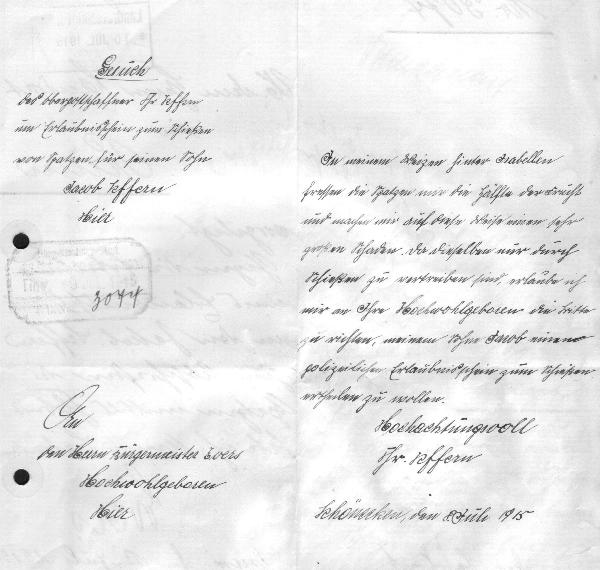 Gesuch
des Oberpostschaffner Chr. Effern
um Erlaubnisschein zum Schießen
von Spatzen für seinen Sohn
Jacob Effern
Hier
3044
An
den Herrn Bürgermeister Evers
Hochwohlgeboren
Hier
In meinem Weizen hinter Isabellen
fressen die Spatzen mir die Hälfte der Frucht
und machen mir auf diese Weise einen sehr
großen Schaden. Da dieselben nur durch
Schießen zu vertreiben sind, erlaube ich
mir an Ihre Hochwohlgeboren die Bitte
zu richten, meinem Sohne Jacob einen
polizeilichen Erlaubnisschein zum Schießen
ertheilen zu wollen.
Hochachtungsvoll
Chr. Effern
Schönecken, den 8 Juli 1915